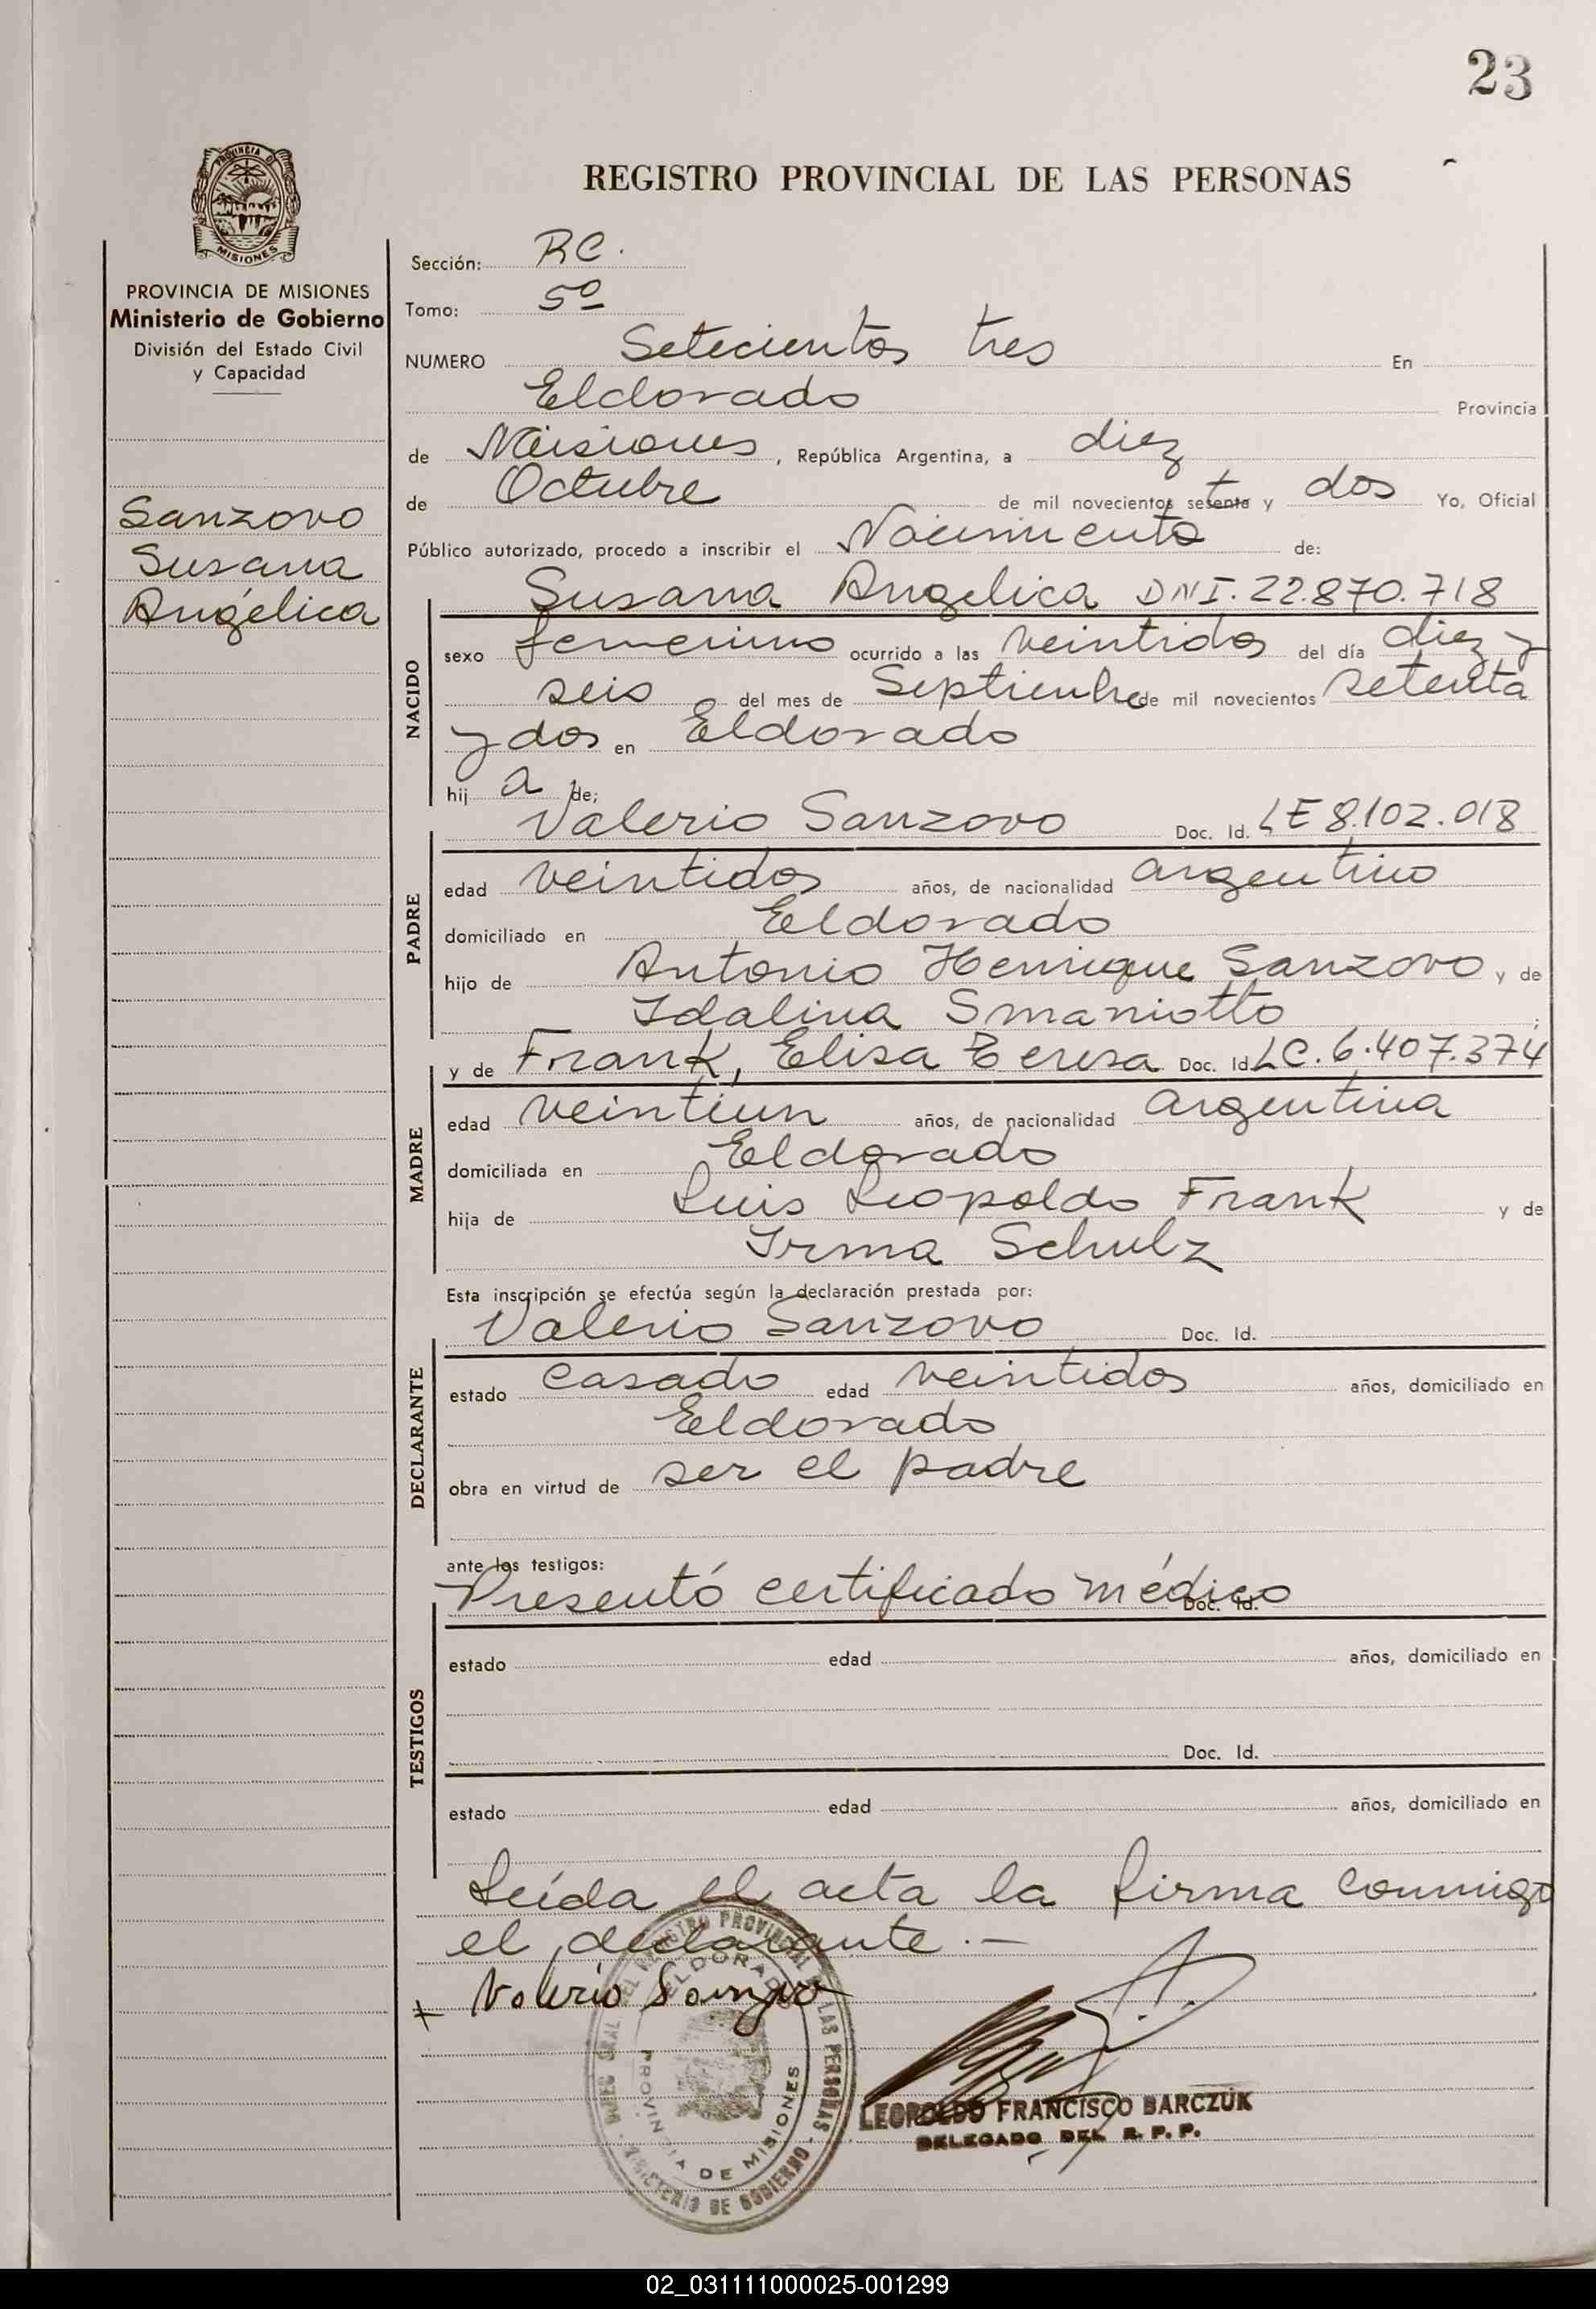 23
REGISTRO PROVINCIAL DE LAS PERSONAS
PROVINCIA DE
MISIONES
PROVINCIA DE MISIONES
Ministerio de Gobierno
División del Estado Civil
y Capacidad
Sanzovo
Susana
Angélica
Sección: RC.
Tomo: 5º
NUMERO Setecientos tres En
Eldorado Provincia
de Misiones, República Argentina, a diez
de Octubre de mil novecientos setenta y dos Yo, Oficial
Público autorizado, procedo a inscribir el Nacimiento de:
Susana Angelica DNI. 22.870.718
NACIDO
sexo femenino ocurrido a las veintidos del día diez y
seis del mes de Septiembre de mil novecientos setenta
y dos en Eldorado
hij a de;
Valerio Sanzovo Doc. Id. LE 8.102.018
PADRE
edad veintidos años, de nacionalidad argentino
domiciliado en Eldorado
hijo de Antonio Henrique Sanzovo y de
Idalina Smaniotto ;
y de Frank, Elisa Teresa Doc. Id. LC. 6.407.374
MADRE
edad veintiun años, de nacionalidad argentina
domiciliada en Eldorado
hija de Luis Leopoldo Frank y de
Irma Schulz
Esta inscripción se efectúa según la declaración prestada por:
Valerio Sanzovo Doc. Id.
DECLARANTE
estado casado edad veintidos años, domiciliado en
Eldorado
obra en virtud de ser el padre
ante los testigos:
Presentó certificado médico Doc. Id.
TESTIGOS
estado edad años, domiciliado en
Doc. Id.
estado edad años, domiciliado en
Leída el acta la firma conmigo
el declarante.—
+ Valerio Sanzovo
REGISTRO PROVINCIAL DE LAS PERSONAS
ELDORADO
PROVINCIA DE MISIONES
MINISTERIO DE GOBIERNO
LEOPOLDO FRANCISCO BARCZUK
DELEGADO DEL R. P. P.
02_031111000025-001299